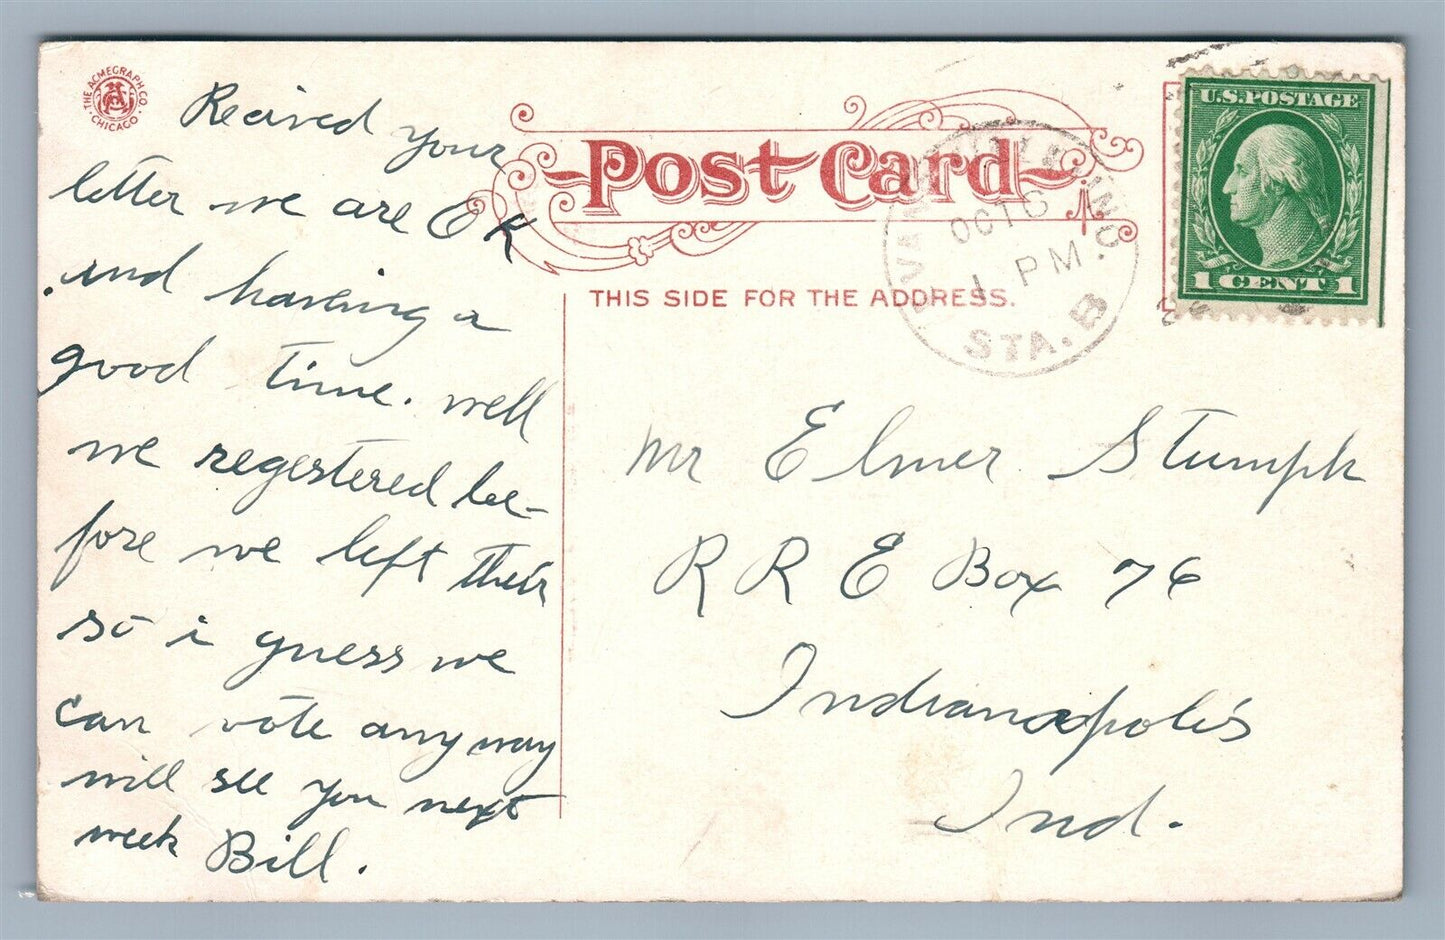 THE ACMEGRAPH CO.
CHICAGO.
Recived your
letter we are OK
and having a
good time. well
we regestered be-
fore we left their
so i guess we
can vote any way
will see you next
week Bill.
Post Card
THIS SIDE FOR THE ADDRESS.
EVANSVILLE, IND.
OCT 6
1 PM
STA. B
U.S. POSTAGE
1 CENT 1
Mr Elmer Stumph
R R E Box 76
Indianapolis
Ind.